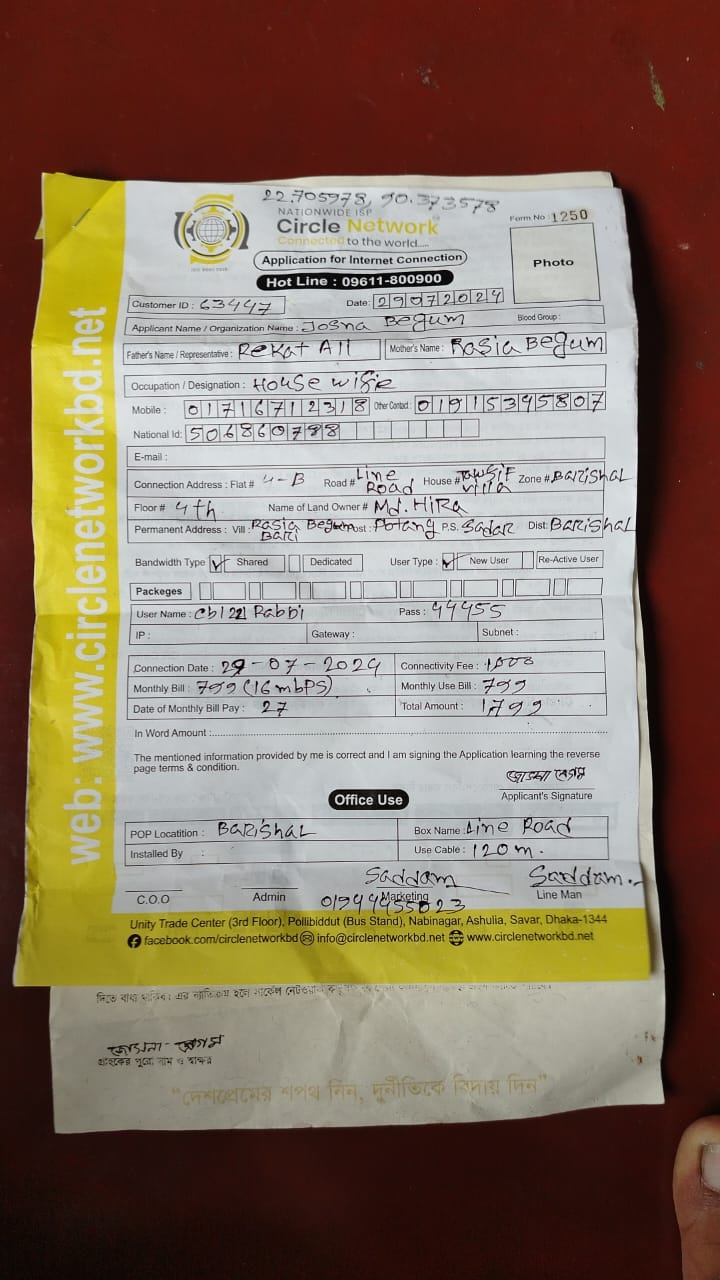 22.705978, 90.373578
NATIONWIDE ISP
Circle Network
Connected to the world.....
ISO 9001:2015
Form No : 1250
Application for Internet Connection
Photo
Hot Line : 09611-800900
Customer ID : 63447 Date: 29072024
Applicant Name / Organization Name : Josna Begum Blood Group :
Father's Name / Representative : Rekat All Mother's Name : Rasia Begum
Occupation / Designation : House wife
Mobile : 01716712318 Other Contact : 01915395807
National Id: 506860788
E-mail :
Connection Address : Flat # 4-B Road # Line Road House # Tawsif villa Zone # BARISHAL
Floor # 4th Name of Land Owner # Md. HiRa
Permanent Address : Vill : Rasia Begum Bari Post : Potang P.S. Sadar Dist: BARISHAL
Bandwidth Type ✓ Shared Dedicated User Type : ✓ New User Re-Active User
Packeges
User Name : Cbl 22 Rabbi Pass : 44455
IP : Gateway : Subnet :
Connection Date : 29-07-2024 Connectivity Fee : 1000
Monthly Bill : 799 (16 mbps) Monthly Use Bill : 799
Date of Monthly Bill Pay : 27 Total Amount : 1799
In Word Amount :
The mentioned information provided by me is correct and I am signing the Application learning the reverse
page terms & condition.
জোসনা বেগম
Applicant's Signature
Office Use
POP Locatition : BARISHAL Box Name : Line Road
Installed By : Use Cable : 120 m.
Saddam Saddam
C.O.O Admin Marketing Line Man
Unity Trade Center (3rd Floor), Pollibiddut (Bus Stand), Nabinagar, Ashulia, Savar, Dhaka-1344
facebook.com/circlenetworkbd info@circlenetworkbd.net www.circlenetworkbd.net
web: www.circlenetworkbd.net
জোসনা বেগম
গ্রাহকের পুরো নাম ও স্বাক্ষর
“দেশপ্রেমের শপথ নিন, দুর্নীতিকে বিদায় দিন”